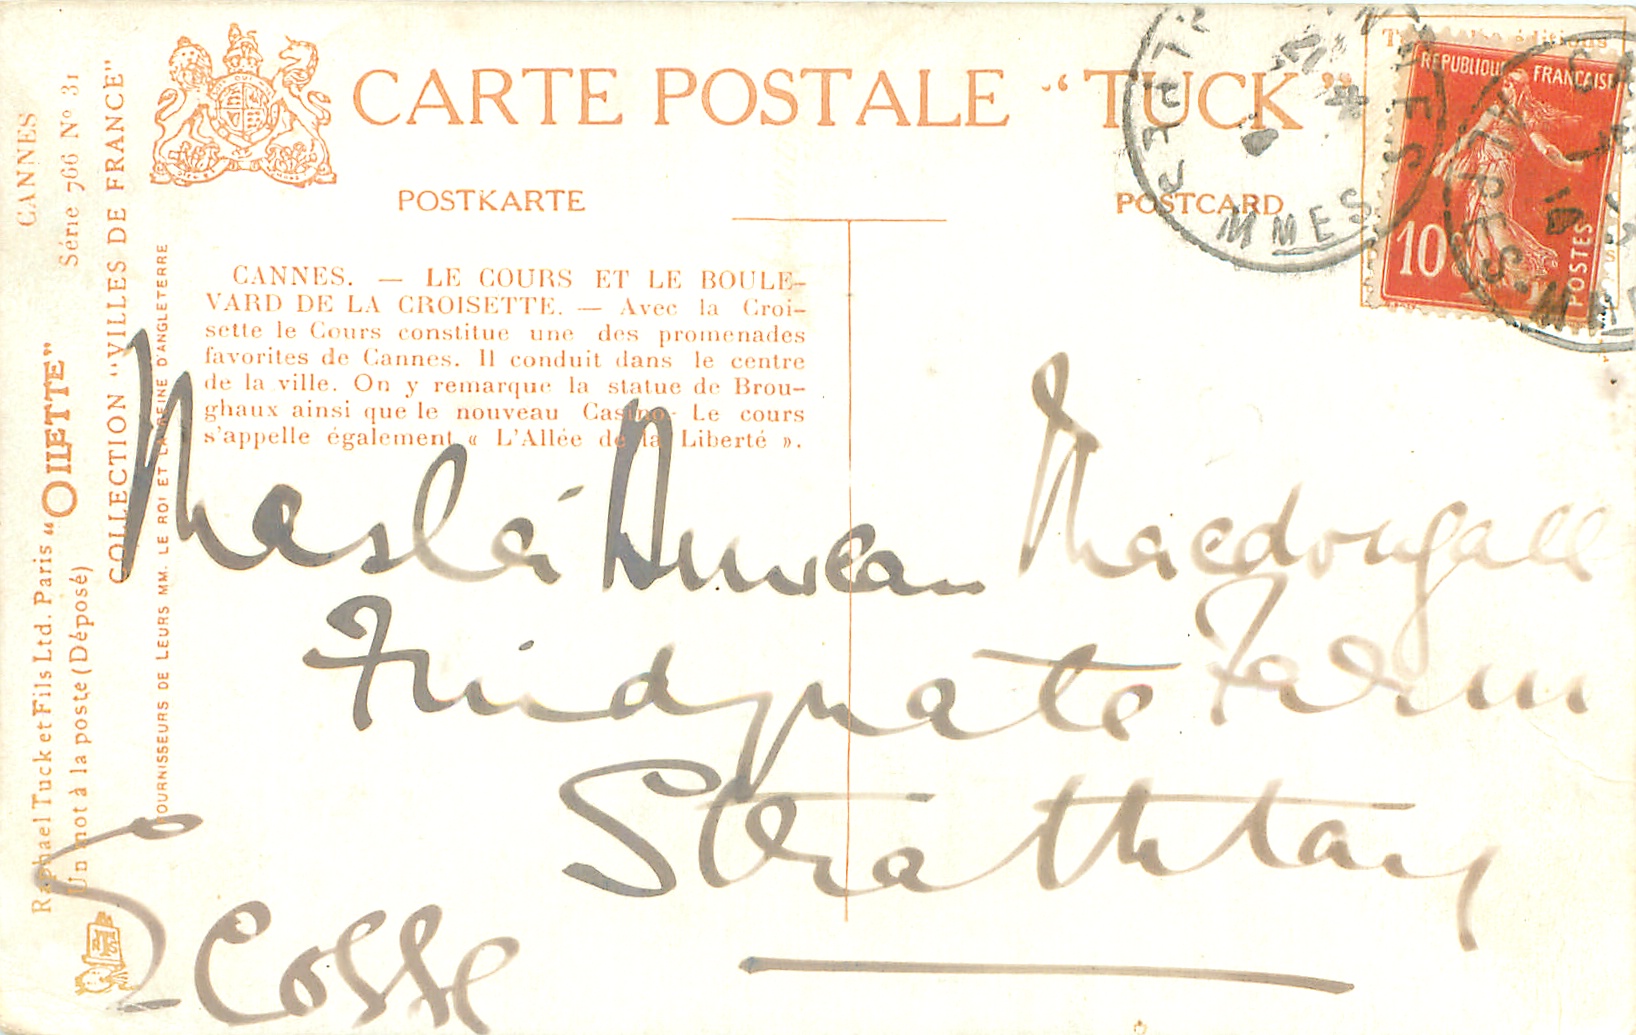 CARTE POSTALE “TUCK”
POSTKARTE
POSTCARD
CANNES. — LE COURS ET LE BOULE-
VARD DE LA CROISETTE. — Avec la Croi-
sette le Cours constitue une des promenades
favorites de Cannes. Il conduit dans le centre
de la ville. On y remarque la statue de Brou-
ghaux ainsi que le nouveau Casino. Le cours
s'appelle également « L'Allée de la Liberté ».
CANNES
Série 766 Nº 31
COLLECTION “VILLES DE FRANCE”
FOURNISSEURS DE LEURS MM. LE ROI ET LA REINE D'ANGLETERRE
Raphael Tuck et Fils Ltd. Paris “OILETTE”
Un mot à la poste (Déposé)
REPUBLIQUE FRANÇAISE
10
POSTES
éditions
ALPES MMES
Duncan Macdougall
Farm
Strathtay
Ecosse